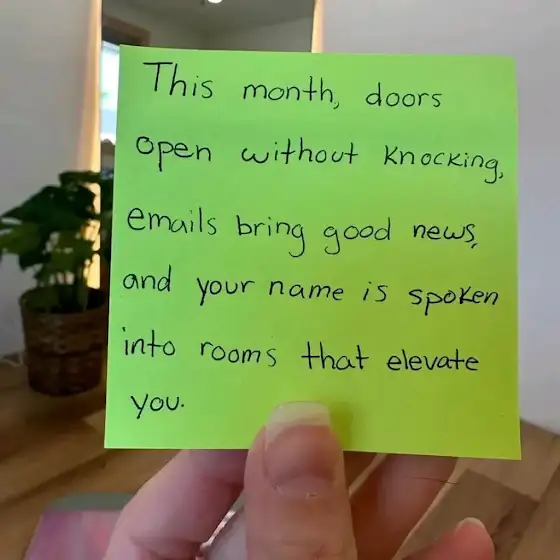 This month, doors
open without knocking,
emails bring good news,
and your name is spoken
into rooms that elevate
you.